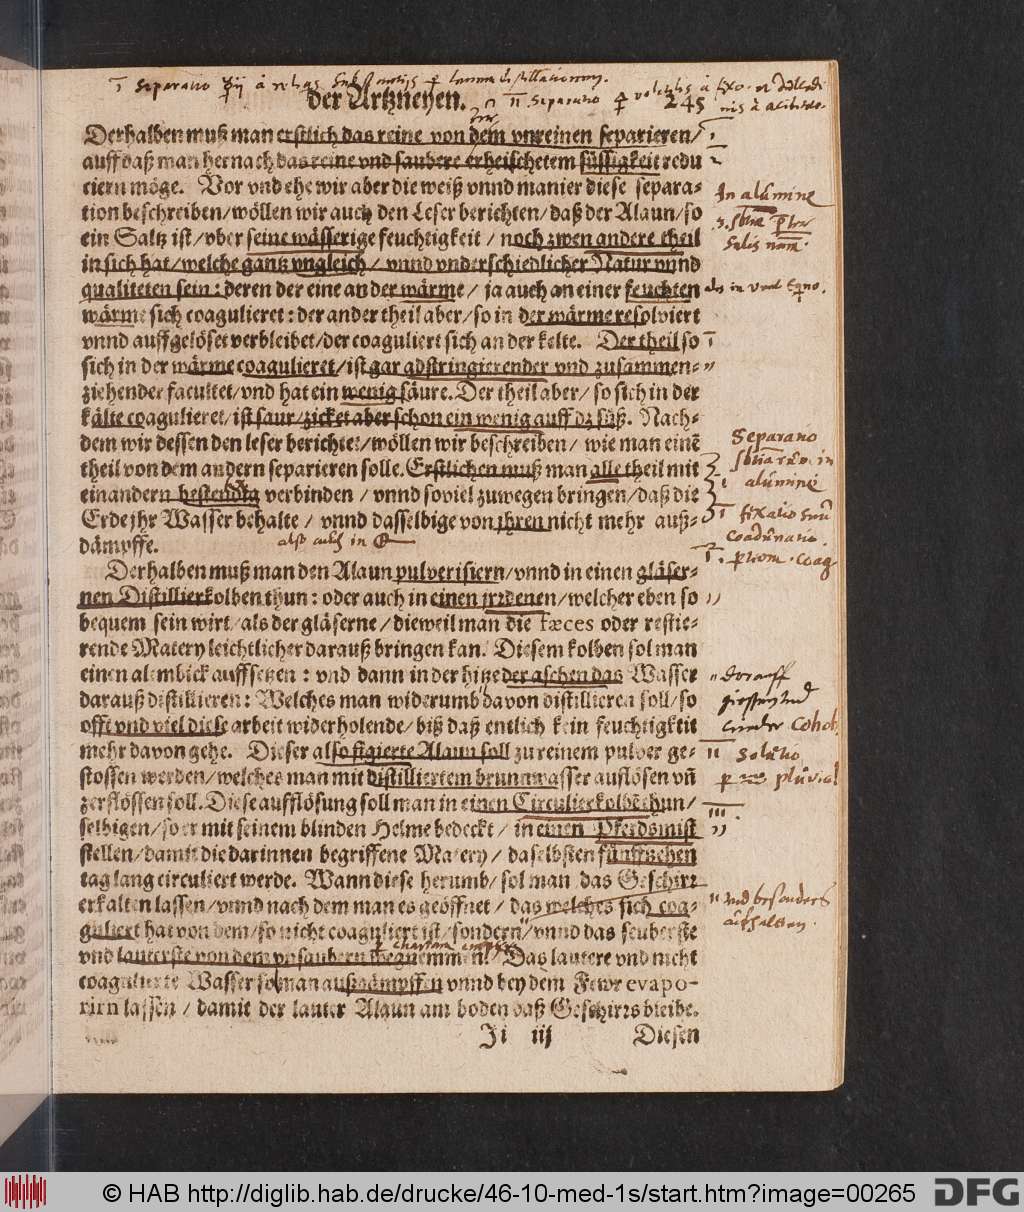 der Artzneyen. 245
Derhalben muß man erstlich das reine von dem vnreinen separieren/
auff daß man hernach das reine vnd saubere erheischetem süssigkeit redu
ciern möge. Vor vnd ehe wir aber die weiß vnnd manier diese separa-
tion beschreiben/wöllen wir auch den Leser berichten/daß der Alaun/so
ein Saltz ist/vber seine wässerige feuchtigkeit/noch zwen andere theil
in sich hat/welche gantz vngleich/vnnd vnderschiedlicher Natur vnnd
qualiteten sein: deren der eine an der wärme/ja auch an einer feuchten
wärme sich coagulieret: der ander theil aber/so in der wärme resolviert
vnnd auffgelöset verbleibet/der coaguliert sich an der kelte. Der theil so
sich in der wärme coagulieret/ist gar adstringierender vnd zusammen-
ziehender facultet/vnd hat ein wenig säure. Der theil aber/so sich in der
kälte coagulieret/ist saur/zicket aber schon ein wenig auff dz süß. Nach-
dem wir dessen den leser berichtet/wöllen wir beschreiben/wie man einē
theil von dem andern separieren solle. Erstlichen muß man alle theil mit
einandern bestendig verbinden/vnnd soviel zuwegen bringen/daß die
Erde jhr Wasser behalte/vnnd dasselbige von jhren nicht mehr auß-
dämpffe.
Derhalben muß man den Alaun pulverisiern/vnnd in einen gläser-
nen Distillierkolben thun: oder auch in einen jrrdenen/welcher eben so
bequem sein wirt/als der gläserne/dieweil man die fæces oder restie-
rende Matery leichtlicher darauß bringen kan. Diesem kolben sol man
einen alembick auffsetzen: vnd dann in der hitze der aschen das Wasser
darauß distillieren: Welches man widerumb davon distillieren soll/so
offt vnd viel diese arbeit widerholende/biß daß entlich kein feuchtigkeit
mehr davon gehe. Dieser also figierte Alaun soll zu reinem pulver ge-
stossen werden/welches man mit distilliertem brunnwasser auflösen vñ
zerflössen soll. Diese aufflösung soll man in einen Circulierkolbē thun/
selbigen/so er mit seinem blinden Helme bedeckt/in einen Pferdsmist
stellen/damit die darinnen begriffene Matery/daselbsten fünffzehen
tag lang circuliert werde. Wann diese herumb/sol man das Geschirr
erkalten lassen/vnnd nach dem man es geöffnet/das welches sich coa-
guliert hat von dem/so nicht coaguliert ist/sondern/vnnd das seuberste
vnd lauterste von dem vnsaubern wegnemmen. Das lautere vnd nicht
coagulierte Wasser sol man außdämpffen vnnd bey dem Fewr evapo-
rirn lassen/damit der lauter Alaun am boden daß Geschirrs bleibe.
Ji iij Diesen
In alumine
Separatio
in
alumine
fixatio
coadunatio
dorauff
Cohob
II
Solutio
III
vnd besonders
© HAB http://diglib.hab.de/drucke/46-10-med-1s/start.htm?image=00265 DFG